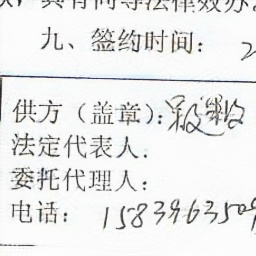 具有同等法律效力
九、签约时间：2
供方（盖章）：
法定代表人．
委托代理人：
电话：1583963509